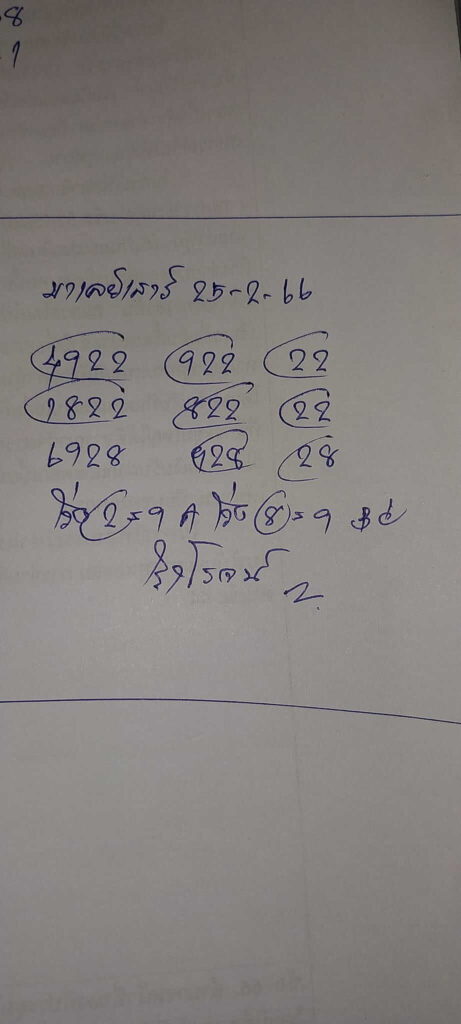 8
1
มาเลย์เสาร์ 25-2-66
4922 922 22
9822 822 22
6928 928 28
วิ่ง 2 = 9 A วิ่ง 8 = 9
รุจโรจน์ 2